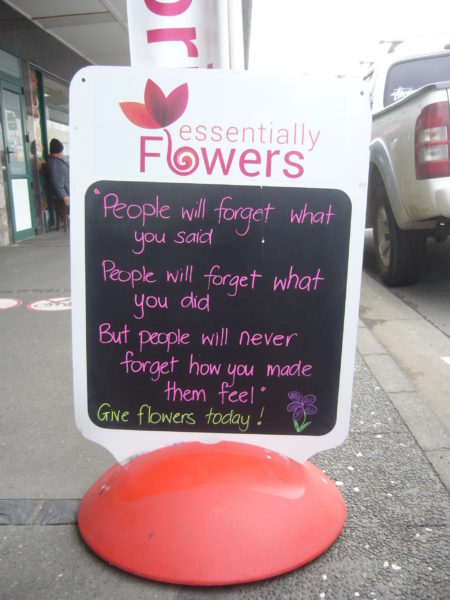 essentially
Flowers
"People will forget what
you said
People will forget what
you did
But people will never
forget how you made
them feel"
Give flowers today!